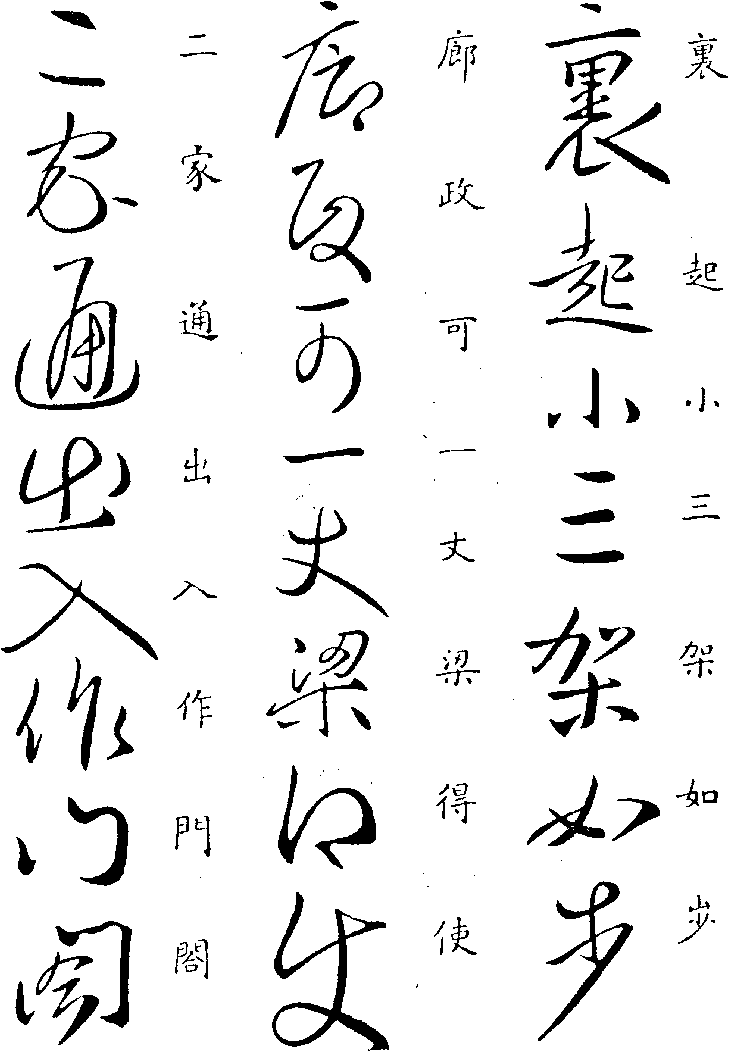 裏起小三架如步
裏起小三架如步
廊政可一丈梁得使
廊政可一丈梁得使
二家通出入作門閤
二家通出入作門閤